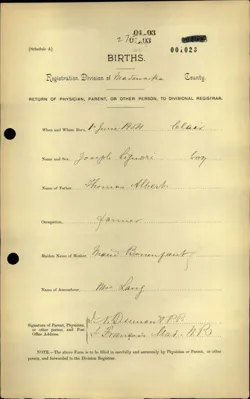 04.03
[Schedule A]
00.023
BIRTHS.
Registration Division of Madawaska County.
RETURN OF PHYSICIAN, PARENT, OR OTHER PERSON, TO DIVISIONAL REGISTRAR.
When and Where Born, 1 June 1914 Clair
Name and Sex, Joseph Liguori boy
Name of Father, Thomas Albert
Occupation, farmer
Maiden Name of Mother, Maud Bonenfant
Name of Accoucheur, Mrs Lang
Signature of Parent, Physician,
or other person, and Post
Office Address.
St Francois Mad. N.B.
NOTE.—The above Form is to be filled in carefully and accurately by Physician or Parent, or other
person, and forwarded to the Division Registrar.